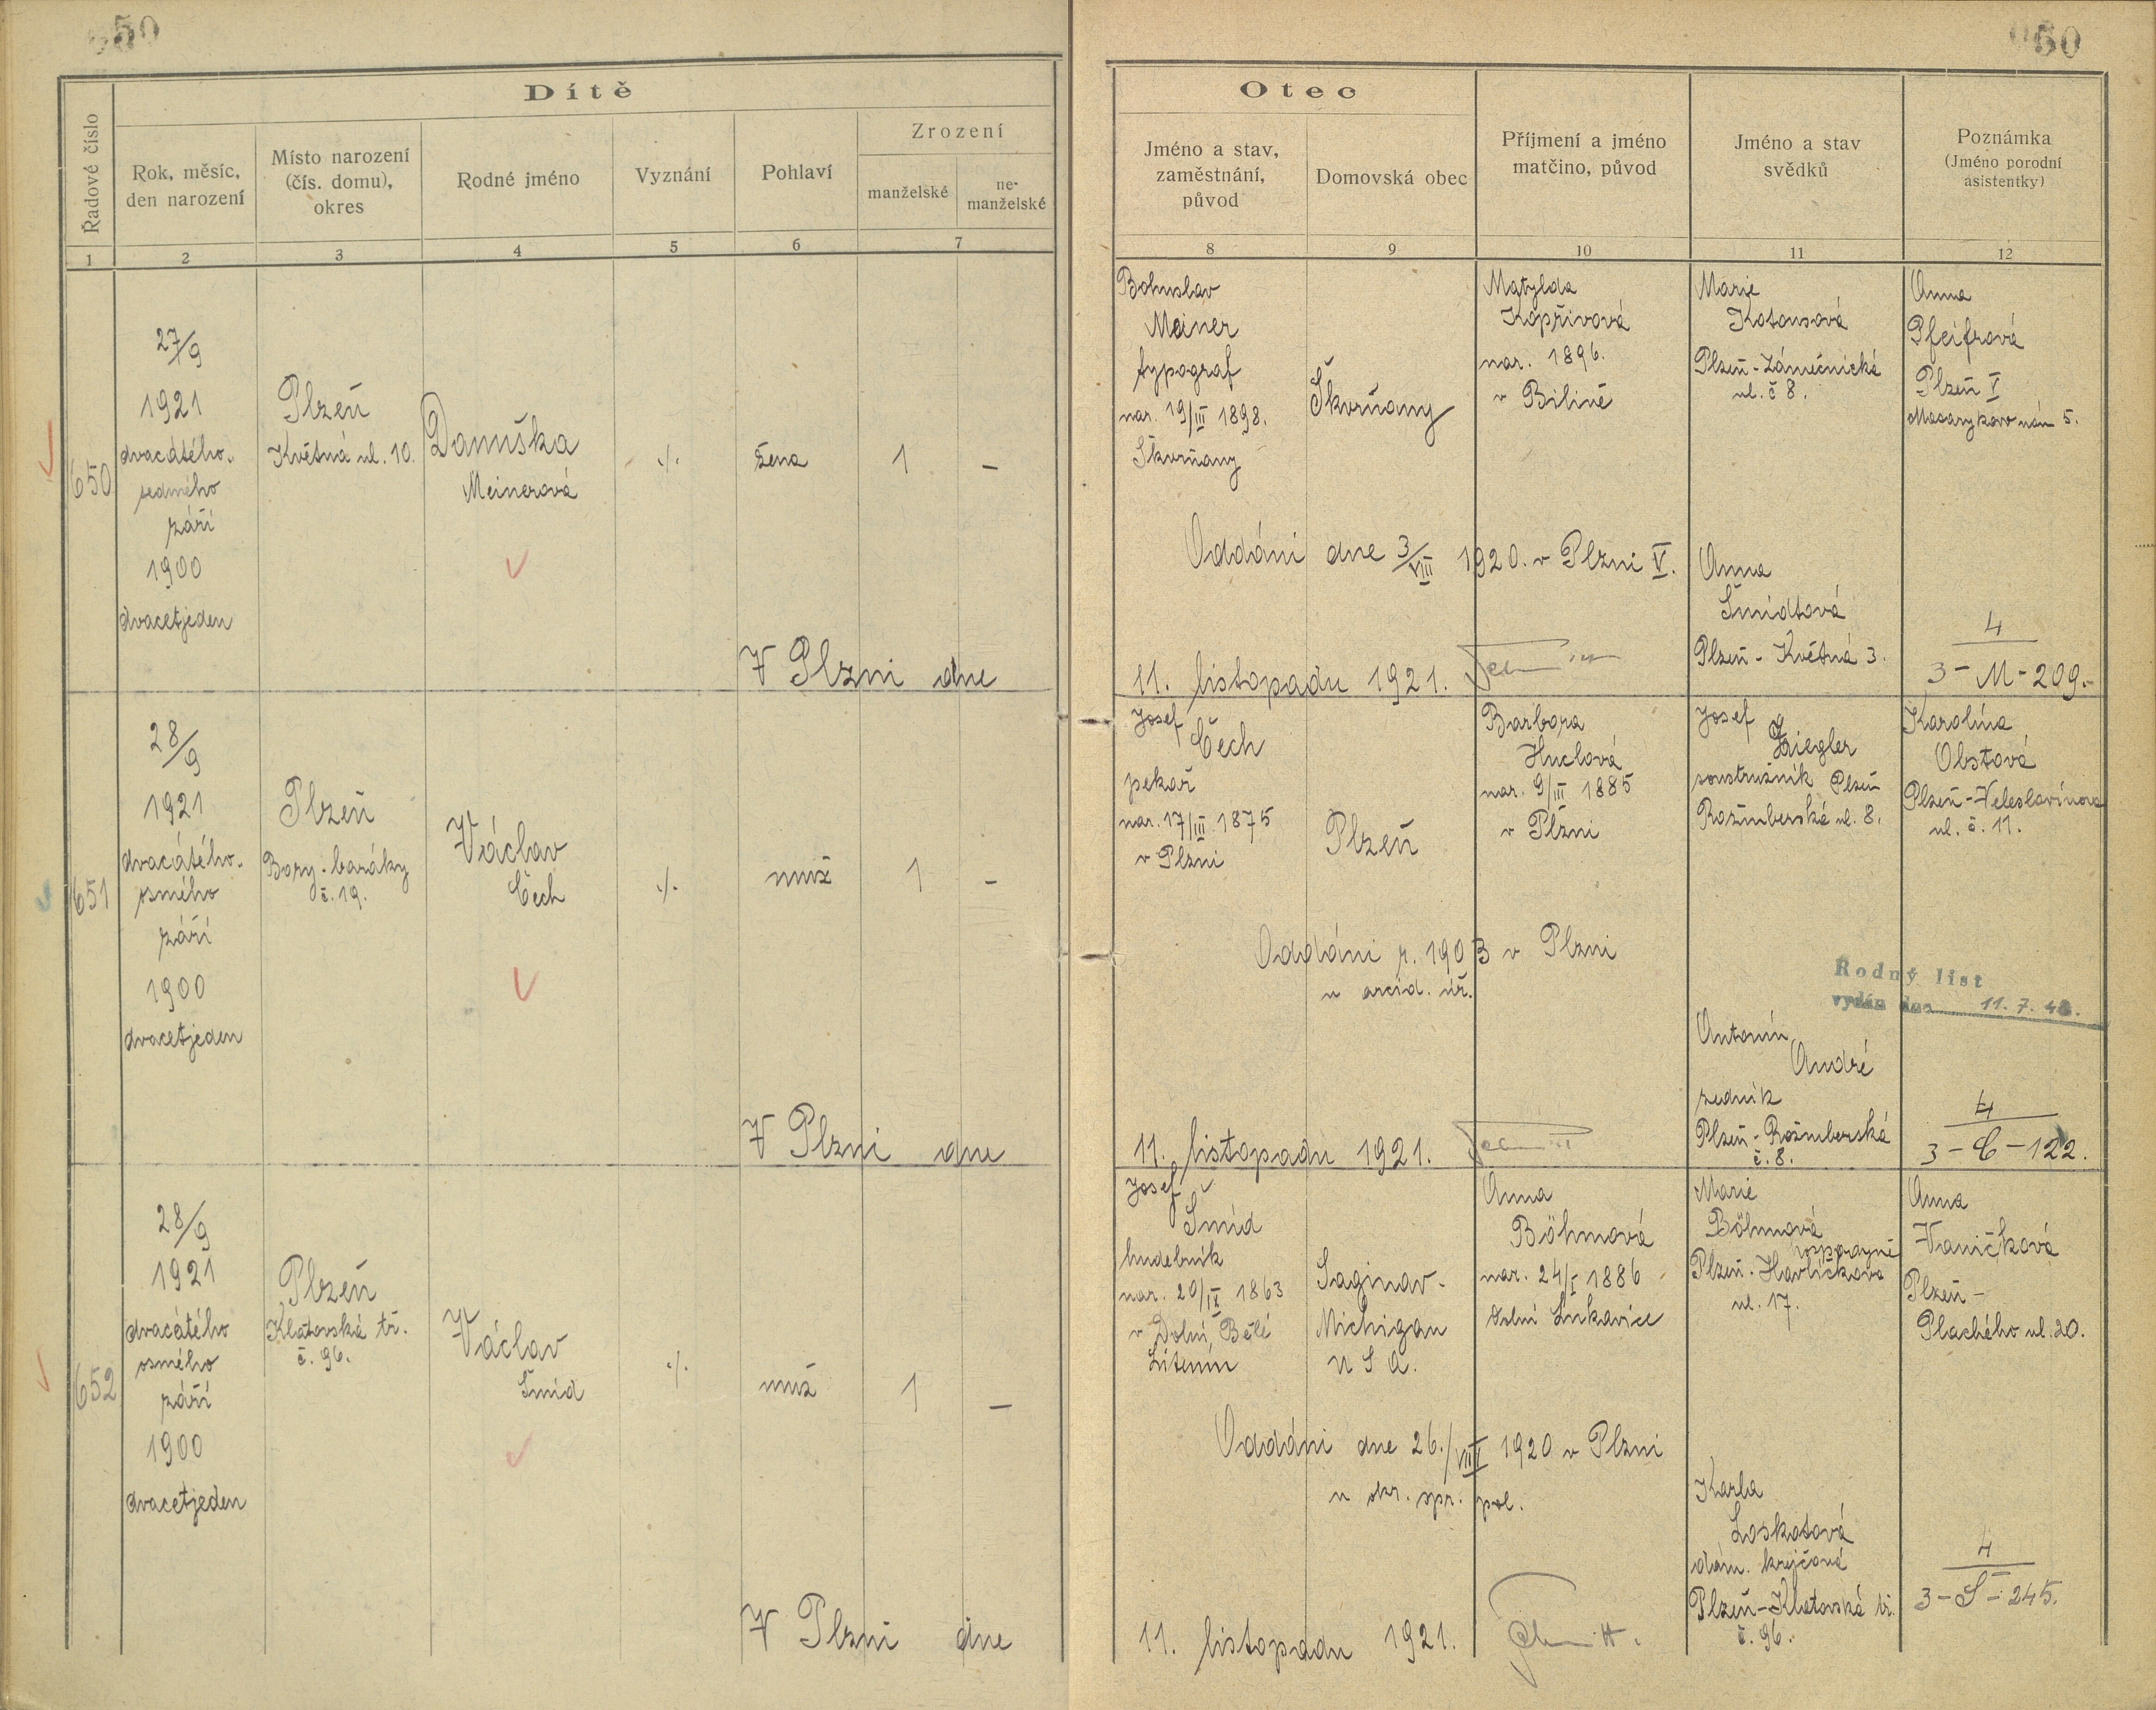 550
Dítě
Řadové číslo
Rok, měsíc,
den narození
Místo narození
(čís. domu),
okres
Rodné jméno
Vyznání
Pohlaví
Zrození
manželské
ne-
manželské
1
2
3
4
5
6
7
650
27/9
1921
dvacátého-
sedmého
září
1900
dvacetjeden
Plzeň
Květná ul. 10.
Danuška
Meinerová
./.
žena
1
–
V Plzni dne
651
28/9
1921
dvacátého-
osmého
září
1900
dvacetjeden
Plzeň
Bory-baráky
č. 19.
Václav
Čech
./.
muž
1
–
V Plzni dne
652
28/9
1921
dvacátého
osmého
září
1900
dvacetjeden
Plzeň
Klatovská tř.
č. 96.
Václav
Šmíd
./.
muž
1
–
V Plzni dne
Otec
Jméno a stav,
zaměstnání,
původ
Domovská obec
Příjmení a jméno
matčino, původ
Jméno a stav
svědků
Poznámka
(Jméno porodní
asistentky)
8
9
10
11
12
Bohuslav
Meiner
typograf
nar. 19/III 1898.
Škvrňany
Škvrňany
Matylda
Kopřivová
nar. 1896.
v Bílině
Marie
Kotousová
Plzeň-Zámečnická
ul. č 8.
Anna
Pfeifrová
Plzeň V
Masarykovo nám 5.
Oddáni dne 3/VIII 1920. v Plzni V.
Anna
Šmidtová
Plzeň - Květná 3.
11. listopadu 1921.
4
3-M-209.-
Josef
Čech
pekař
nar. 17/III 1875
v Plzni
Plzeň
Barbora
Huclová
nar. 9/III 1885
v Plzni
Josef
Ziegler
soustružník Plzeň
Rožmberská ul. 8.
Karolína
Obstová
Plzeň-Veleslavínova
ul. č. 11.
Oddáni r. 1903 v Plzni
u arcid. úř.
Rodný list
vydán dne 11. 7. 
Antonín
André
zedník
Plzeň-Rožmberská
č. 8.
11. listopadu 1921.
4
3-C-122.
Josef
Šmíd
hudebník
nar. 20/IX 1863
v Dolní Bělé
Saginav-
Michigan
U S A.
Anna
Böhmová
nar. 24/I 1886
dolní Lukavice
Marie
Böhmová
Plzeň-Havlíčkova
ul. 17.
Anna
Vaničková
Plzeň-
Plachého ul. 20.
Oddáni dne 26./VIII 1920 v Plzni
u okr. spr. pol.
Karla
Loskotová
dám. krejčová
Plzeň-Klatovská tř.
č. 96.
11. listopadu 1921.
4
3-S-245.